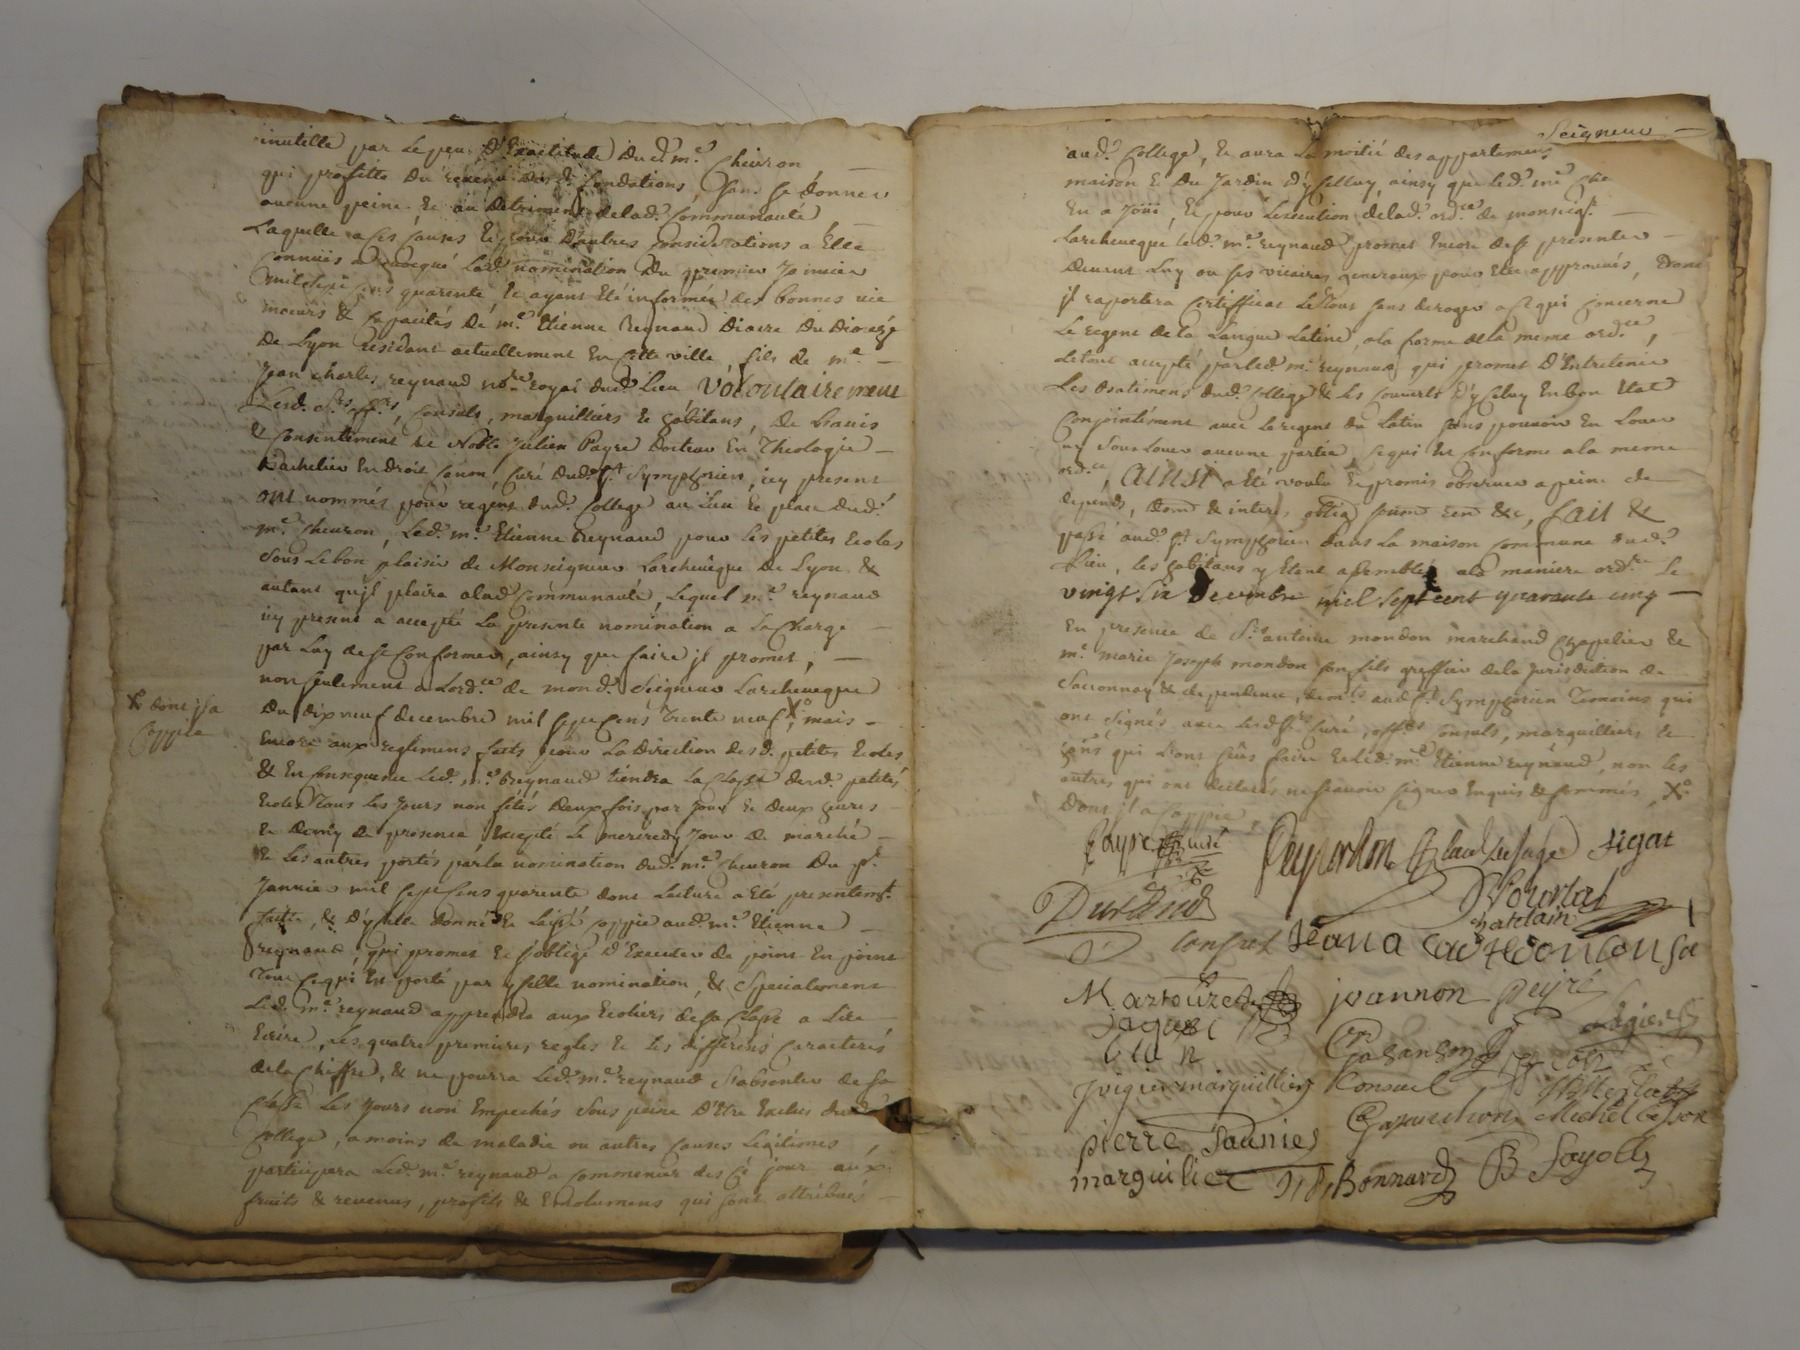 inutille par le peu d'Exactitude dud. m.e Cheuron
qui proffitte du revenu desd. fondations, sans se donner
aucune peine et au detriment de lad. Communauté
Laquelle a ces causes et pour d'autres considerations a Elle
connuës a revoqué lad. nomination du premier Janvier
mil sept cens quarente, et ayant Eté informée des bonnes vie
moeurs & capacités de m.e Etienne Reynaud Diacre du Dioceze
de Lyon residant actuellement En cette ville, fils de m.e
Jean Charles reynaud no.re royal dud. Lieu Volontairement
Lesd. s.rs off.rs, Consuls, marguilliers et habitans, de L'avis
& Consentement de Noble Julien Payre Docteur En Theologie
Bachelier En droit Canon, Curé dud. S.t Symphorien, icy present
ont nommés pour regent dud. College au Lieu et place dud.
m.e Cheuron, Led. m.e Etienne Reynaud pour les petites Ecoles
sous Le bon plaisir de Monseigneur Larchevêque de Lyon &
autant qu'jl plaira a lad. Communauté, Lequel m.e reynaud
icy present a accepté La presente nomination a La Charge
par Luy de se Conformer, ainsy que faire jl promet,
non seulement a Lord.ce de mond. Seigneur Larcheveque
Du dix neuf decembre mil sept cens trente neuf X.o, mais
Encore aux reglemens faits pour La direction desd. petites Ecoles
X.o dont jl a
Coppie
& En consequence Led. m.e Reynaud tiendra la Classe desd. petites
Ecoles Tous les Jours non fetés Deux fois par Jour et deux heures
et demy de presence, Excepté Le mercredy Jour de marché
et Les autres portés par la nomination dud. m.e Cheuron du p.r
Janvier mil sept cens quarente dont Lecture a Eté presentem.t
faitte, & d'ycelle donné et Laissé coppie aud. m.e Etienne
reynaud, qui promet et s'oblige d'Executer de point En point
Tout ce qui Est porté par ycelle nomination, & specialement
Led. m.e reynaud apprendra aux Ecoliers de sa Classe a Lire
Ecrire, Les quatre premieres regles et Les differens caracteres
de la Chiffre, & ne pourra Led. m.e reynaud s'absenter de sa
Classe Les Jours non Empechés sous peine d'Etre Exclus dud.
College, a moins de maladie ou autres Causes Legitimes,
participera Led. m.e reynaud a commencer des ce jour aux
fruits & revenus, profits & Emolumens qui sont attribués
Seigneur
aud. College, et aura La moitié des appartemens
maison et du Jardin d'ycelluy, ainsy que led. m.e Che
En a Joüi, Et pour L'execution de lad. ord.ce de monseig.r
Larcheveque led. m.e reynaud promet Encore de se presenter
devant Luy ou ses vicaires generaux pour Etre approuvés, dont
jl raportera Certifficat Le Tout sans deroger a Ce qui concerne
Le regent de la Langue Latine, a la forme de la meme ord.ce,
Le tout accepté par led. m.e reynaud qui promet d'Entretenir
Les Batimens dud. College & les Couverts d'yCeluy En bon Etat
Conjointement avec Le regent du Latin sans pouvoir En Louer
ny Sous Louer aucune partie, ce qui Est conforme a la meme
ord.ce, Ainsi a Eté voulu Et promis observer a peine de
depends, dom. & interes oblig. soum. ren. &c, fait &
passé aud. S.t Symphorien dans La maison commune dud.
Lieu, les habitans y Etant assemblés a la maniere ord.re Le
vingt six decembre mil sept cent quarante cinq
En presence de S.r antoine mondon marchand Chapelier &
m.e marie Joseph mondon son fils greffier de la Jurisdiction de
Saconnay & dependence, dem.ts aud. S.t Symphorien Temoins qui
ont signés avec Lesd. S.rs Curé, off.rs Consuls, marguilliers et
hab.ns qui L'ont sçûs faire et led. m.e Etienne reynaud, non les
autres qui ont declarés ne sçavoir signer Enquis & sommés, X.o
Dont jl a Coppie
Payre Curé Peyrardon Claud Lesage jigat
Durand Pourtal
chatelain
consul
Martouret joannon peijré
jaques
Giganson
jvigier marguillier Consuel
Gapuechon Michel
pierre Saunier
marguilier Bonnard B Fayolle